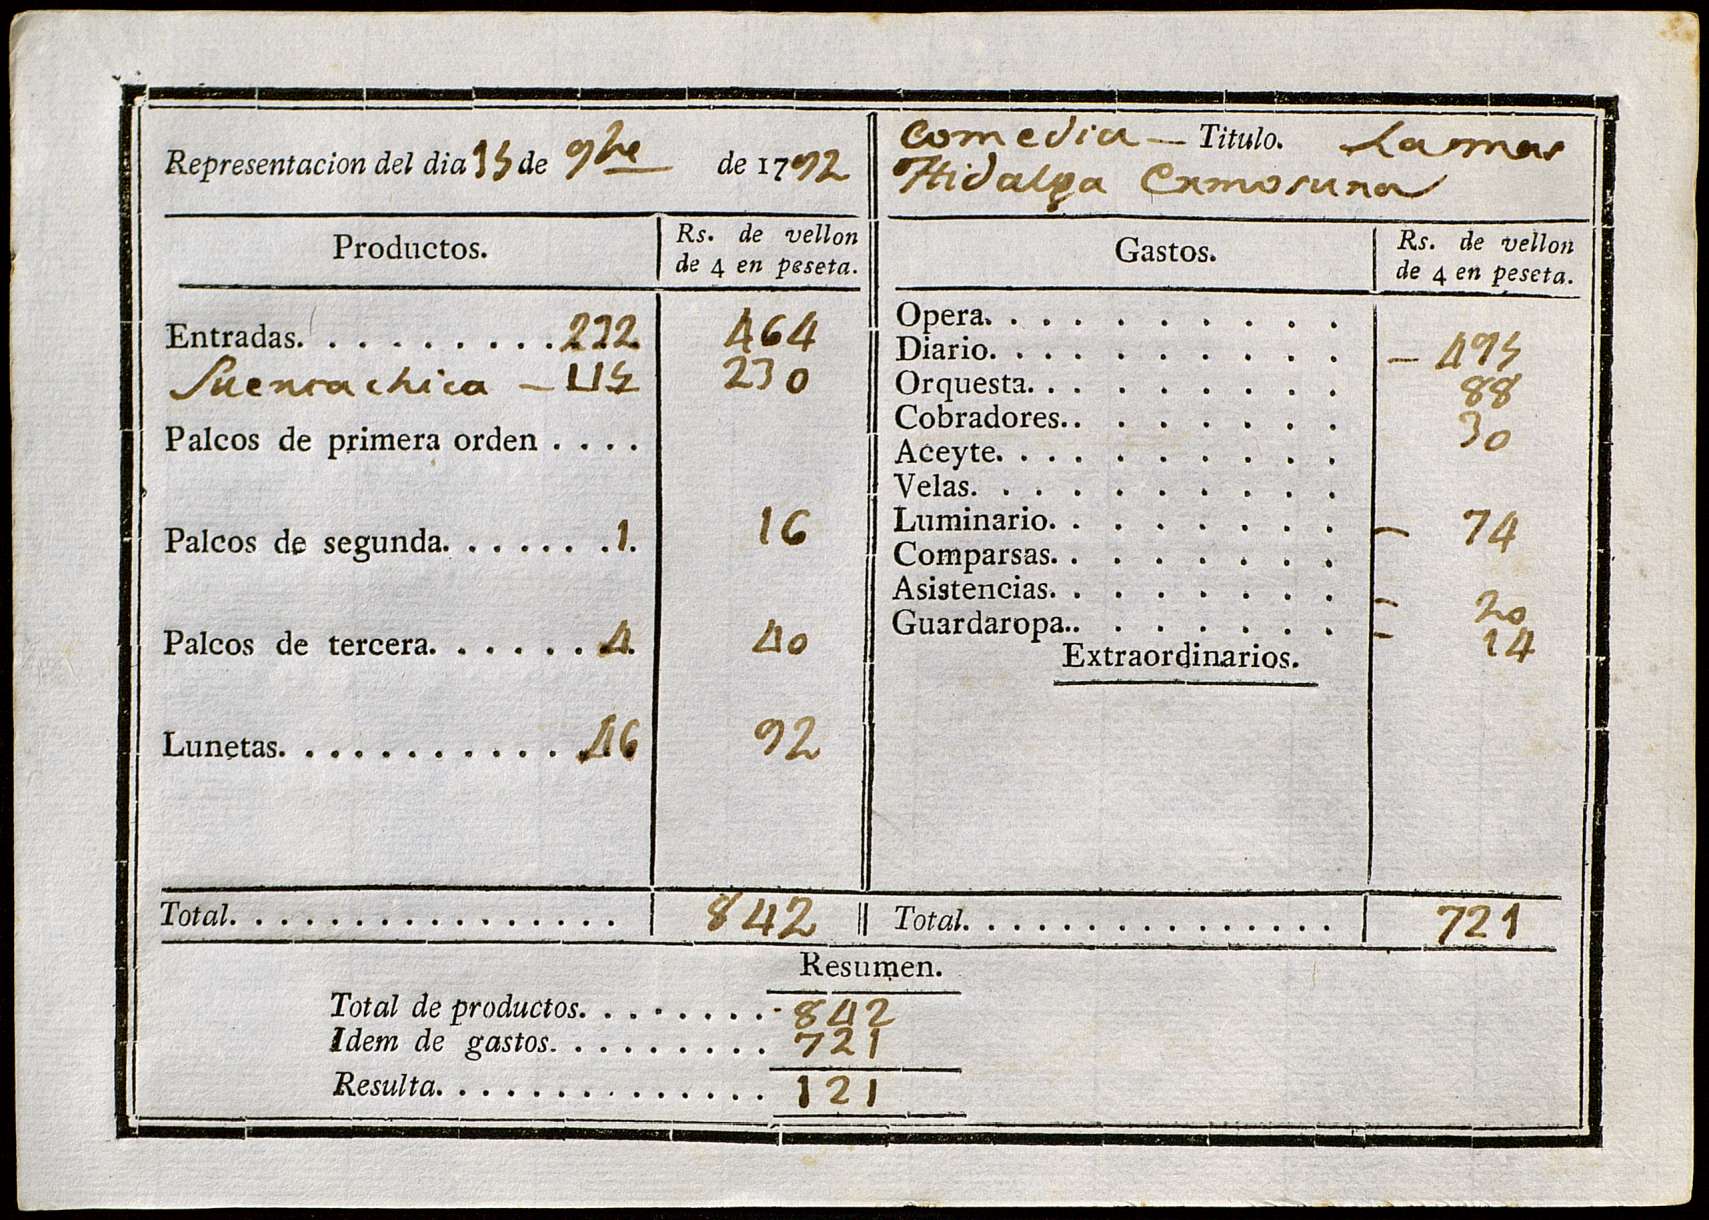 Representacion del dia 15 de 9bre de 1792
Comedia — Titulo. La mas
Hidalga Ermosura
Productos. Rs. de vellon
de 4 en peseta.
Entradas. . . . . . . . . . 232 464
Puerta chica — 115 230
Palcos de primera orden . . . .
Palcos de segunda. . . . . . . 1. 16
Palcos de tercera. . . . . . . 4. 40
Lunetas. . . . . . . . . . . . 46 92
Total. . . . . . . . . . . . . . . . 842
Gastos. Rs. de vellon
de 4 en peseta.
Opera. . . . . . . . . .
Diario. . . . . . . . . . — 495
Orquesta. . . . . . . . . 88
Cobradores. . . . . . . . 30
Aceyte. . . . . . . . . .
Velas. . . . . . . . . .
Luminario. . . . . . . . — 74
Comparsas. . . . . . . .
Asistencias. . . . . . . . - 20
Guardaropa. . . . . . . . - 14
Extraordinarios.
Total. . . . . . . . . . . . . . . 721
Resumen.
Total de productos. . . . . . . . - 842
Idem de gastos. . . . . . . . . 721
Resulta. . . . . . . . . . . . . 121